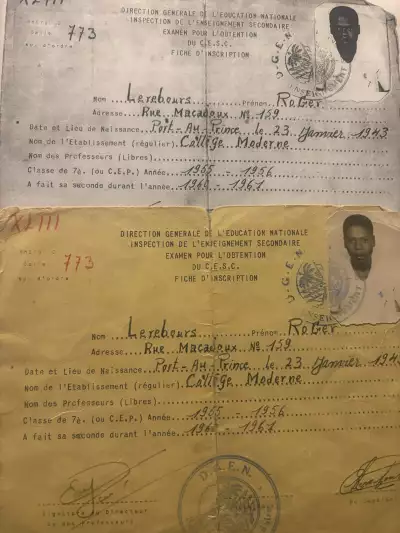 XLIII
773
DIRECTION GENERALE DE L'EDUCATION NATIONALE
INSPECTION DE L'ENSEIGNEMENT SECONDAIRE
EXAMEN POUR L'OBTENTION
DU C.E.S.C.
FICHE D'INSCRIPTION
Nom Lerebours Prénom RoGer
Adresse Rue Macadoux No 159
Date et Lieu de Naissance Port-Au-Prince le 23 Janvier 1943
Nom de l'Etablissement (régulier) Collège Moderne
Nom des Professeurs (Libres)
Classe de 7è. (ou C.E.P.) Année 1955 - 1956
A fait sa seconde durant l'année 1960 - 1961
XLIII
773
DIRECTION GENERALE DE L'EDUCATION NATIONALE
INSPECTION DE L'ENSEIGNEMENT SECONDAIRE
EXAMEN POUR L'OBTENTION
DU C.E.S.C.
FICHE D'INSCRIPTION
Nom Lerebours Prénom RoGer
Adresse Rue Macadoux No 159
Date et Lieu de Naissance Port-Au-Prince le 23 Janvier 194
Nom de l'Etablissement (régulier) Collège Moderne
Nom des Professeurs (Libres)
Classe de 7è. (ou C.E.P.) Année 1955 - 1956
A fait sa seconde durant l'année 1960 - 1961
D.G.E.N.
Signature du Directeur
ou des Professeurs